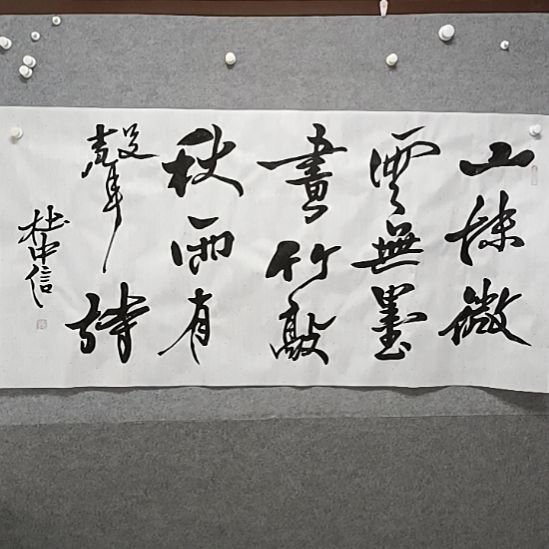 山抹微
雲無墨
畫竹敲
秋雨有
聲詩
杜中信